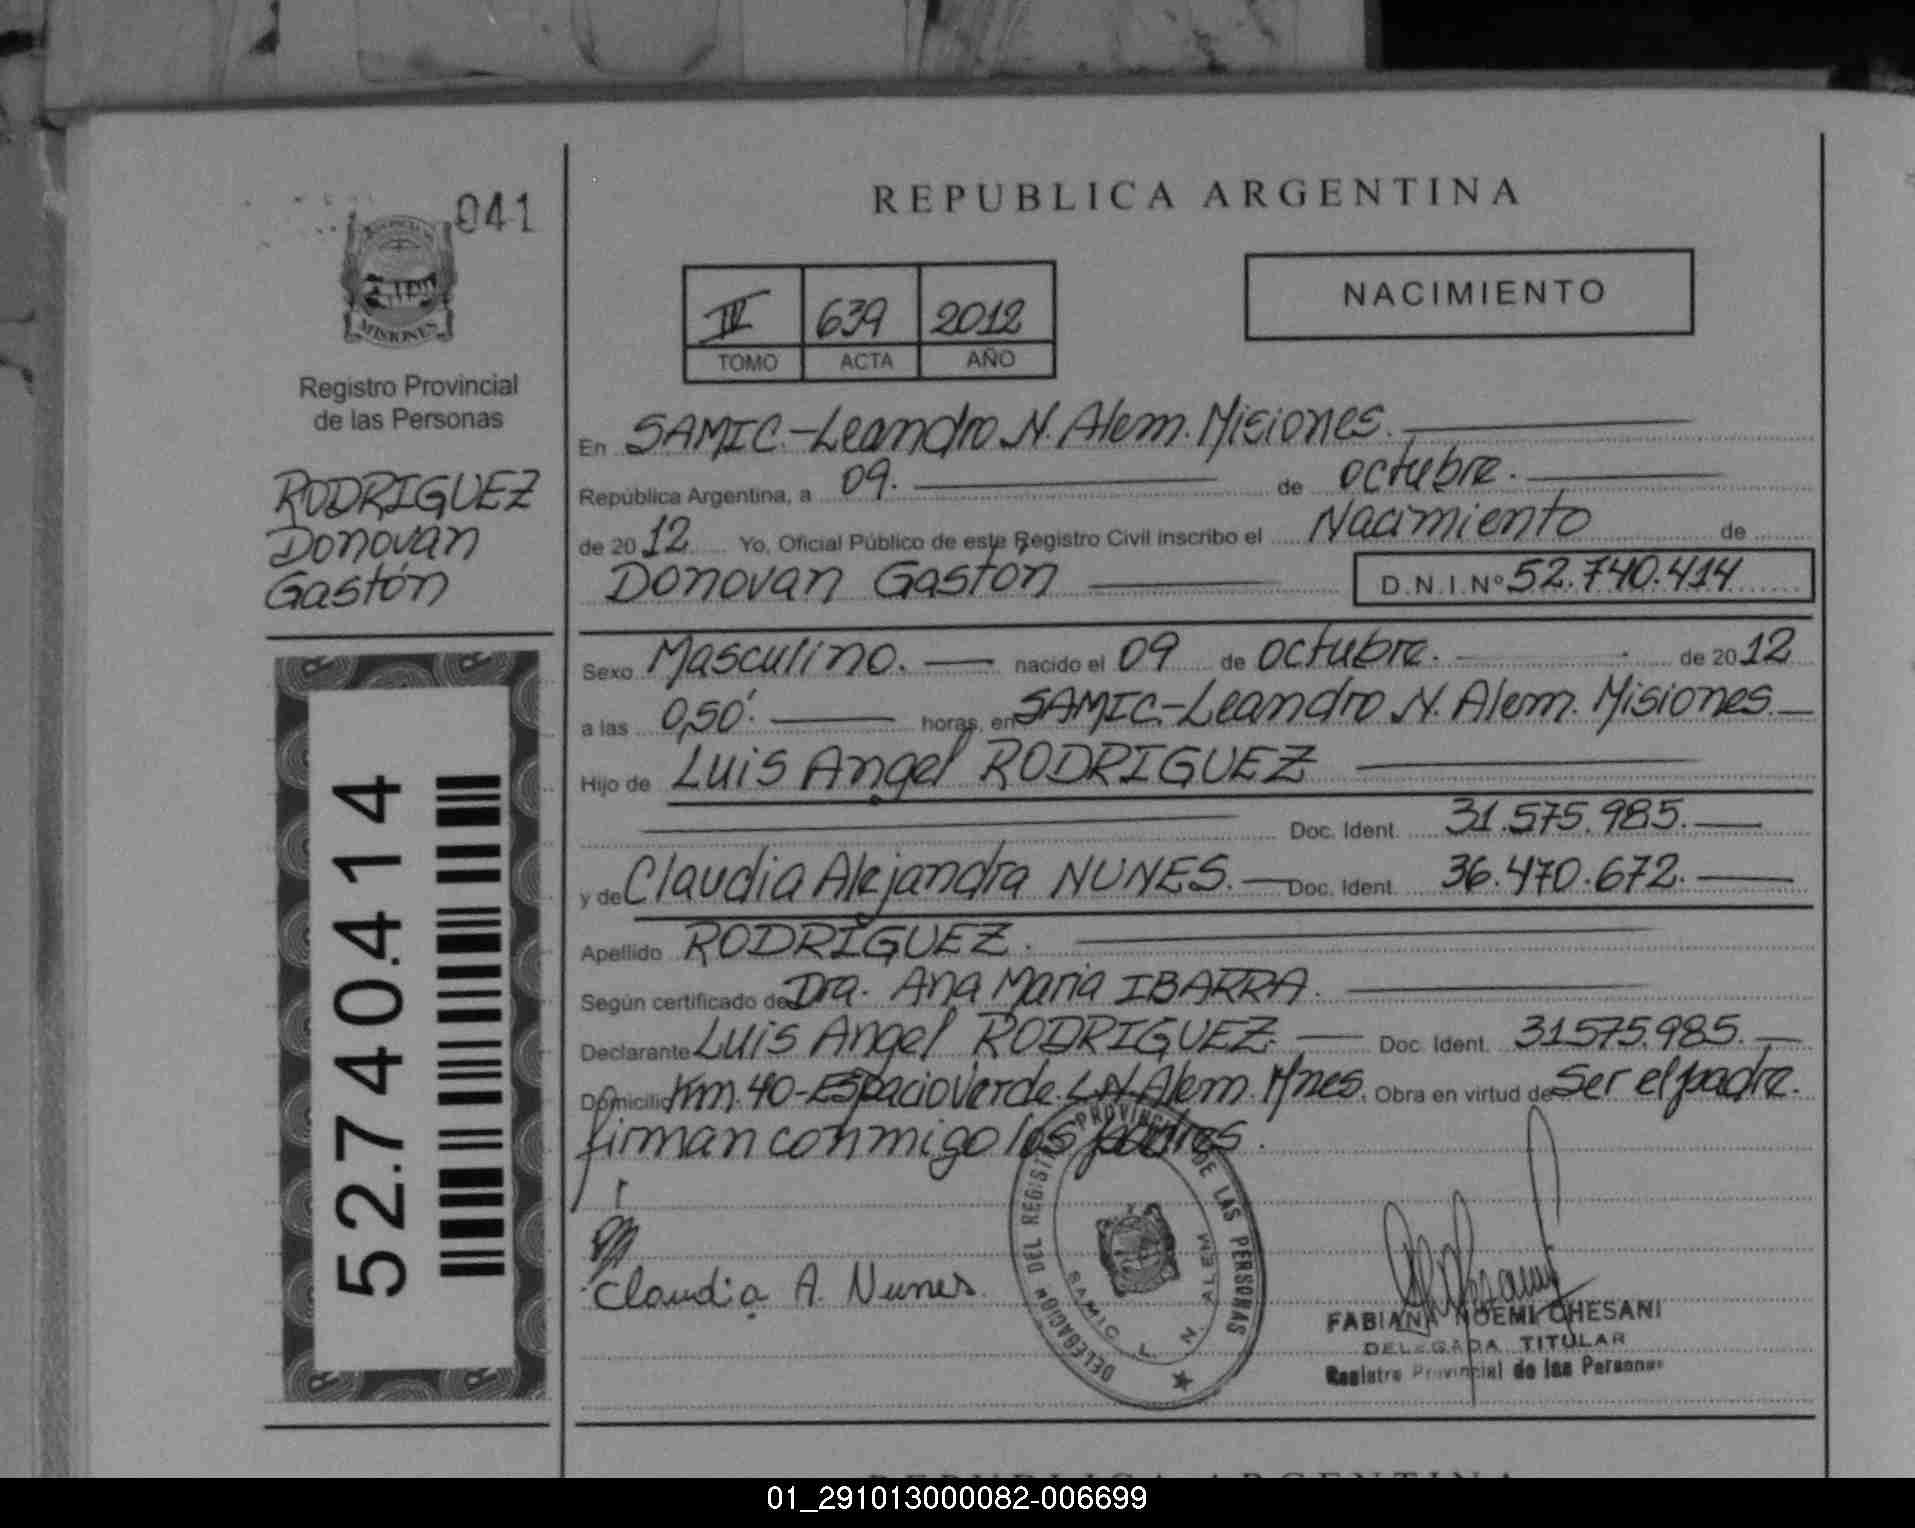 041
MISIONES
Registro Provincial
de las Personas
RODRIGUEZ
Donovan
Gastón
52.740.414
REPUBLICA ARGENTINA
IV 639 2012
TOMO ACTA AÑO
NACIMIENTO
En SAMIC.-Leandro N. Alem. Misiones.
República Argentina, a 09. de octubre.
de 2012 Yo, Oficial Público de este Registro Civil inscribo el Nacimiento de
Donovan Gastón D.N.I.Nº 52.740.414
Sexo Masculino. nacido el 09 de octubre. de 2012
a las 0,50'. horas, en SAMIC.-Leandro N. Alem. Misiones.
Hijo de Luis Angel RODRIGUEZ
Doc. Ident. 31.575.985.
y de Claudia Alejandra NUNES. Doc. Ident. 36.470.672.
Apellido RODRIGUEZ.
Según certificado de Dra. Ana Maria IBARRA.
Declarante Luis Angel RODRIGUEZ. Doc. Ident. 31575.985.
Domicilio Km. 40-Espacio Verde. L.N. Alem. Mnes. Obra en virtud de Ser el padre.
firman conmigo los padres.
Claudia A. Nunes
DELEGACIÓN DEL REGISTRO PROVINCIAL DE LAS PERSONAS
SAMIC L. N. ALEM
FABIANA NOEMI CHESANI
DELEGADA TITULAR
Registro Provincial de las Personas
REPUBLICA ARGENTINA
01_291013000082-006699